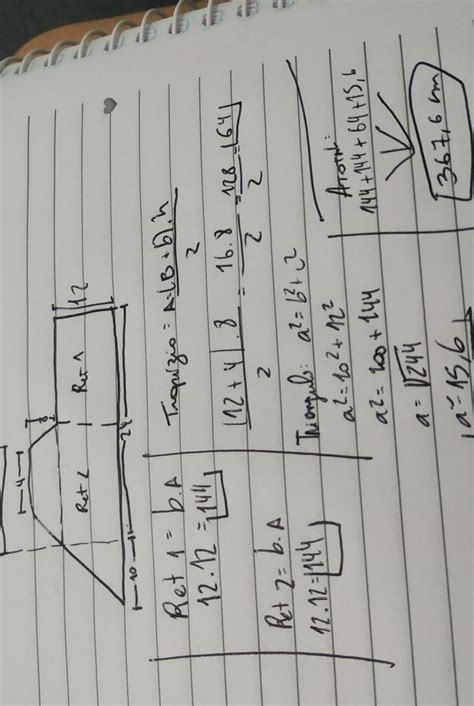 4
8
12
Ret 2
Ret 1
10
24
Ret 1 = b.A
12.12 = 144
Ret 2 = b.A
12.12 = 144
Trapízio = A=(B+b).h
2
(12+4).8 = 16.8 = 128 = 64
2 2 2
Triangulo: a² = b² + c²
a² = 10² + 12²
a² = 100 + 144
a = √244
a = 15,6
Atotal:
144+144+64+15,6
367,6 cm